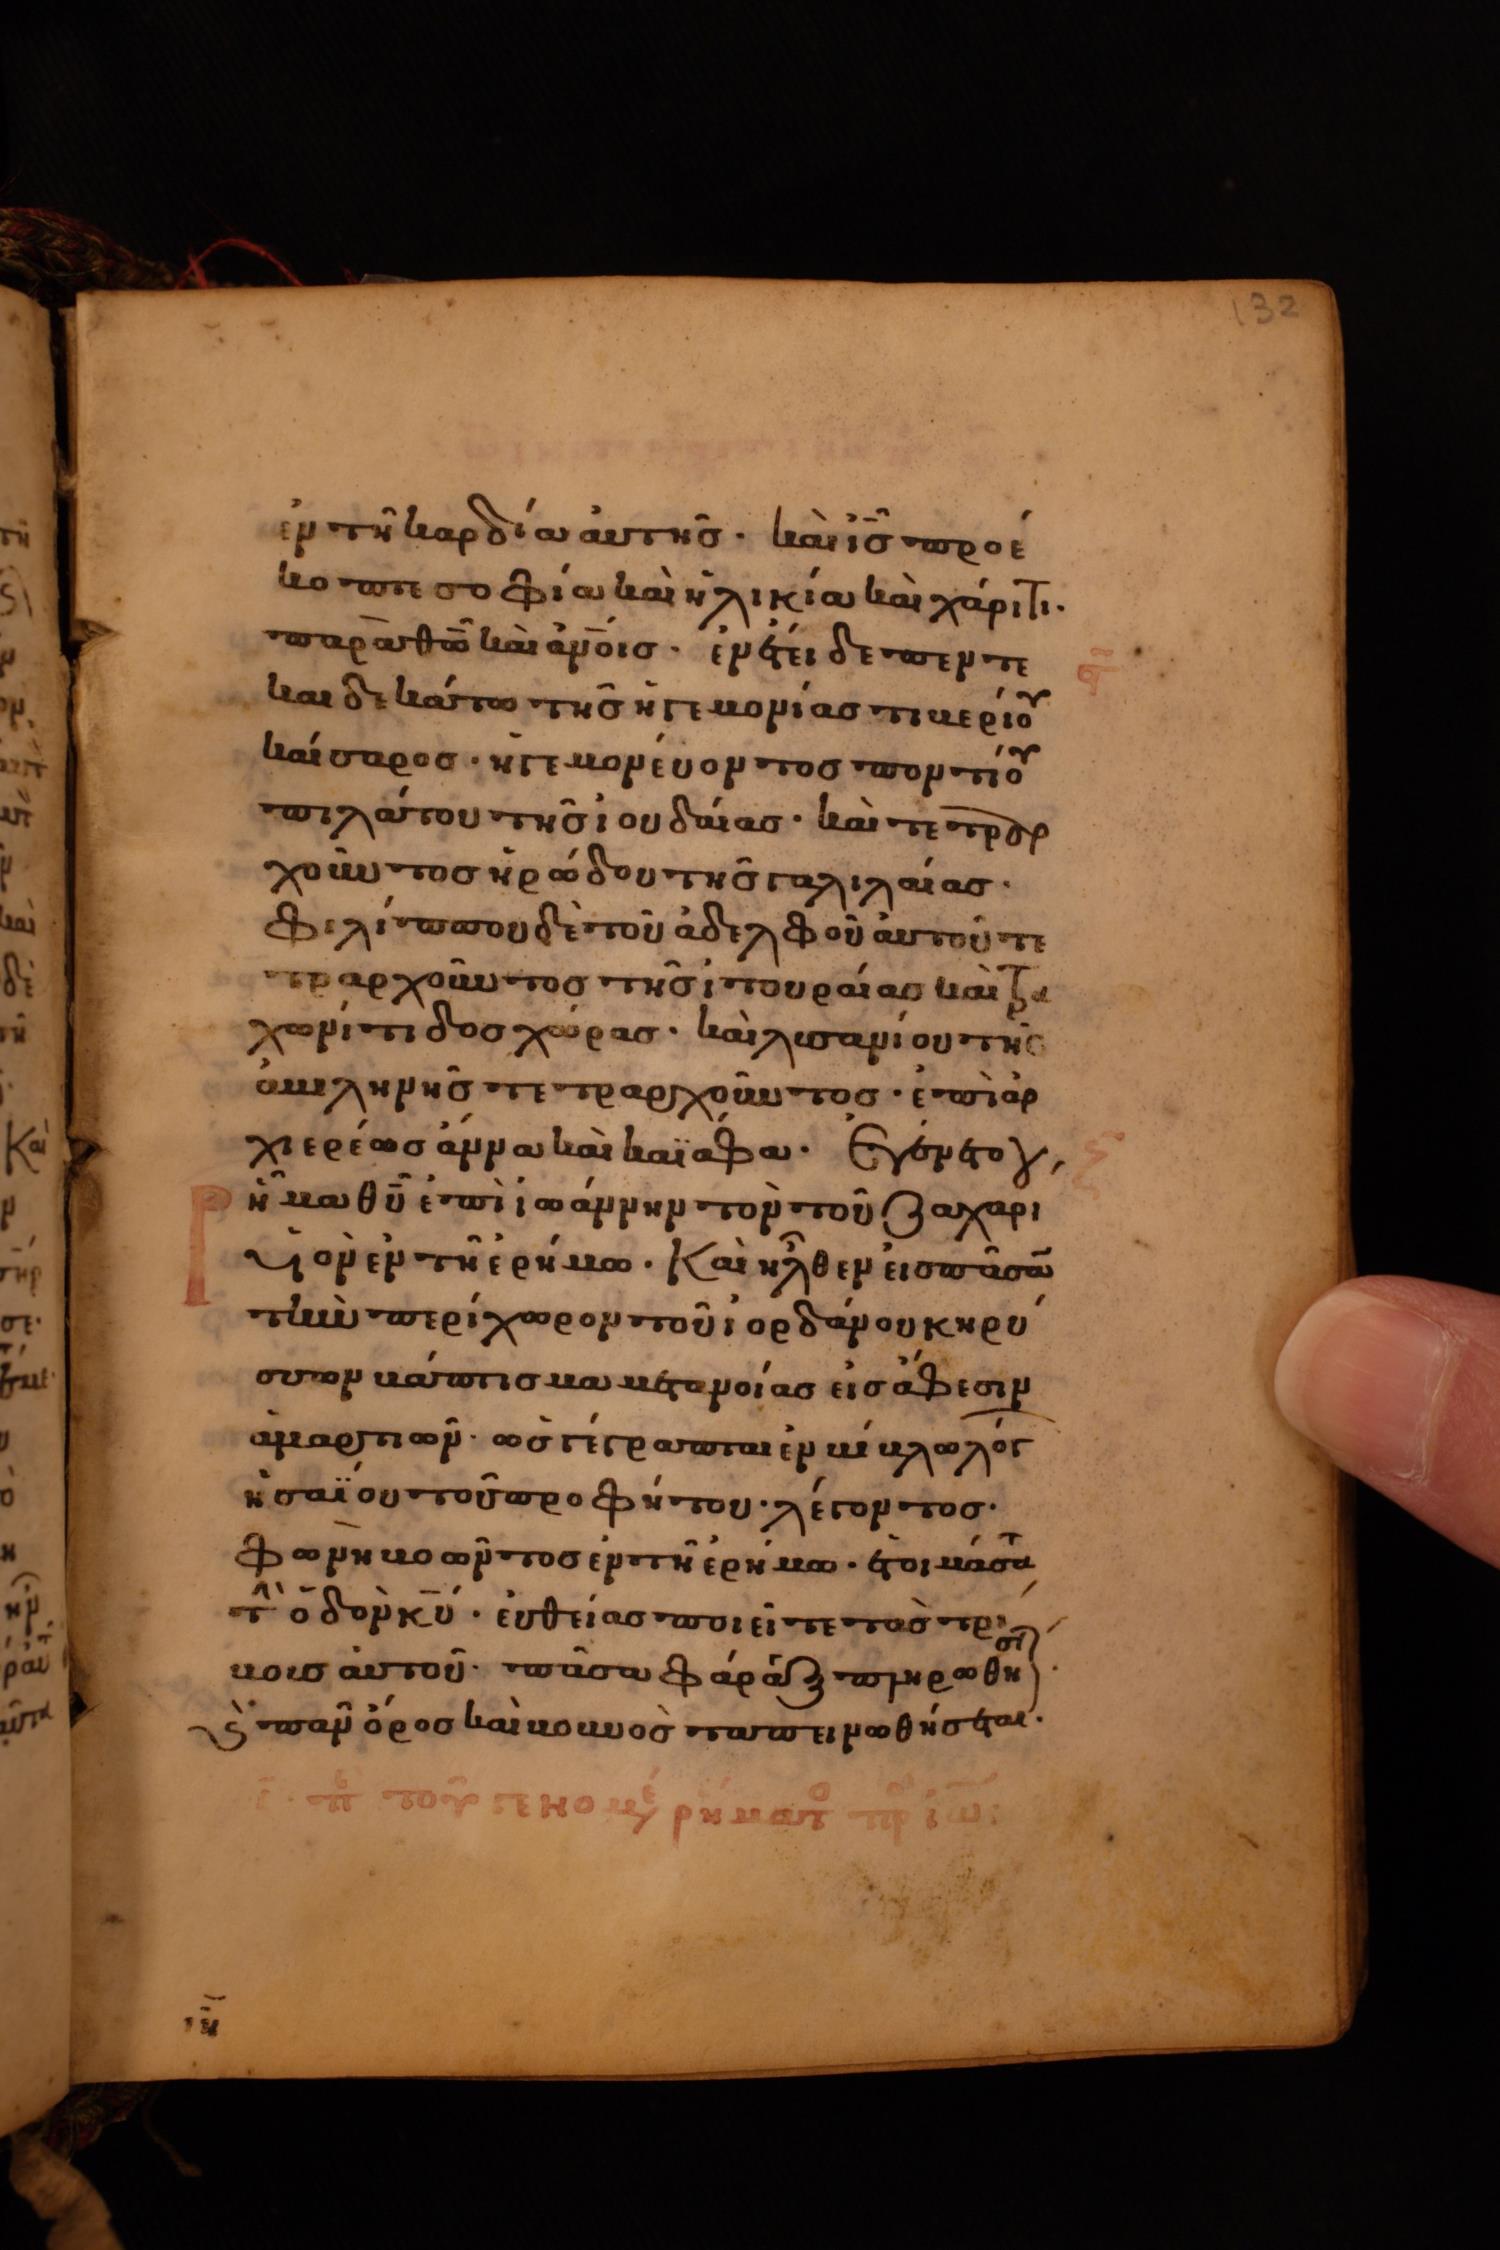 132
ἐν τῆ καρδία ἀυτῆσ · καὶ ἰ̅σ̅ προέ
κοπτε σοφία καὶ ἡλικία καὶ χάριτι ·
παρὰ θ̅ω̅ καὶ ἀν̅οισ · ἐν ἔτει δε πεντε
και δεκάτω τῆσ ἡγεμονίασ τιβερίου
καίσαροσ · ἡγεμονέυοντοσ ποντίου
πιλάτου τῆσ ἰουδαίασ · καὶ τετραρ
χοῦντοσ ἡρώδου τῆσ γαλιλαίασ ·
φιλίππου δὲ τοῦ ἀδελφοῦ ἀυτοῦ τε
τραρχοῦντοσ τῆσ ἰτουραίασ καὶ τρα
χωνίτιδοσ χώρασ · καὶ λυσανίου τῆσ
ἀβιληνῆσ τετραρχοῦντοσ · ἐπὶ ἀρ
χιερέωσ ἄννα καὶ καϊάφα · Ἐγένετο
ῥῆμα θ̅υ̅ ἐπὶ ἰωάννην τὸν τοῦ ζαχαρι
ου ὑιὸν ἐν τῆ ἐρήμω · Καὶ ἦλθεν εἰσ πᾶσαν
τὴν περίχωρον τοῦ ἰορδάνου κηρύ
σσων βάπτισμα μετανοίασ εἰσ ἄφεσιν
ἁμαρτιῶν · ὡσ γέγραπται ἐν βίβλω λόγ
ἡσαΐου τοῦ προφήτου · λέγοντοσ ·
φωνὴ βοῶντοσ ἐν τῆ ἐρήμω · ἑτοιμάσατε
τὴν ὁδὸν κ̅υ̅ · ἐυθείασ ποιεῖτε τὰσ τρί
βουσ ἀυτοῦ · πᾶσα φάραγξ πληρωθήσεται ·
καὶ πᾶν ὄροσ καὶ βουνὸσ ταπεινωθήσεται ·
ιη